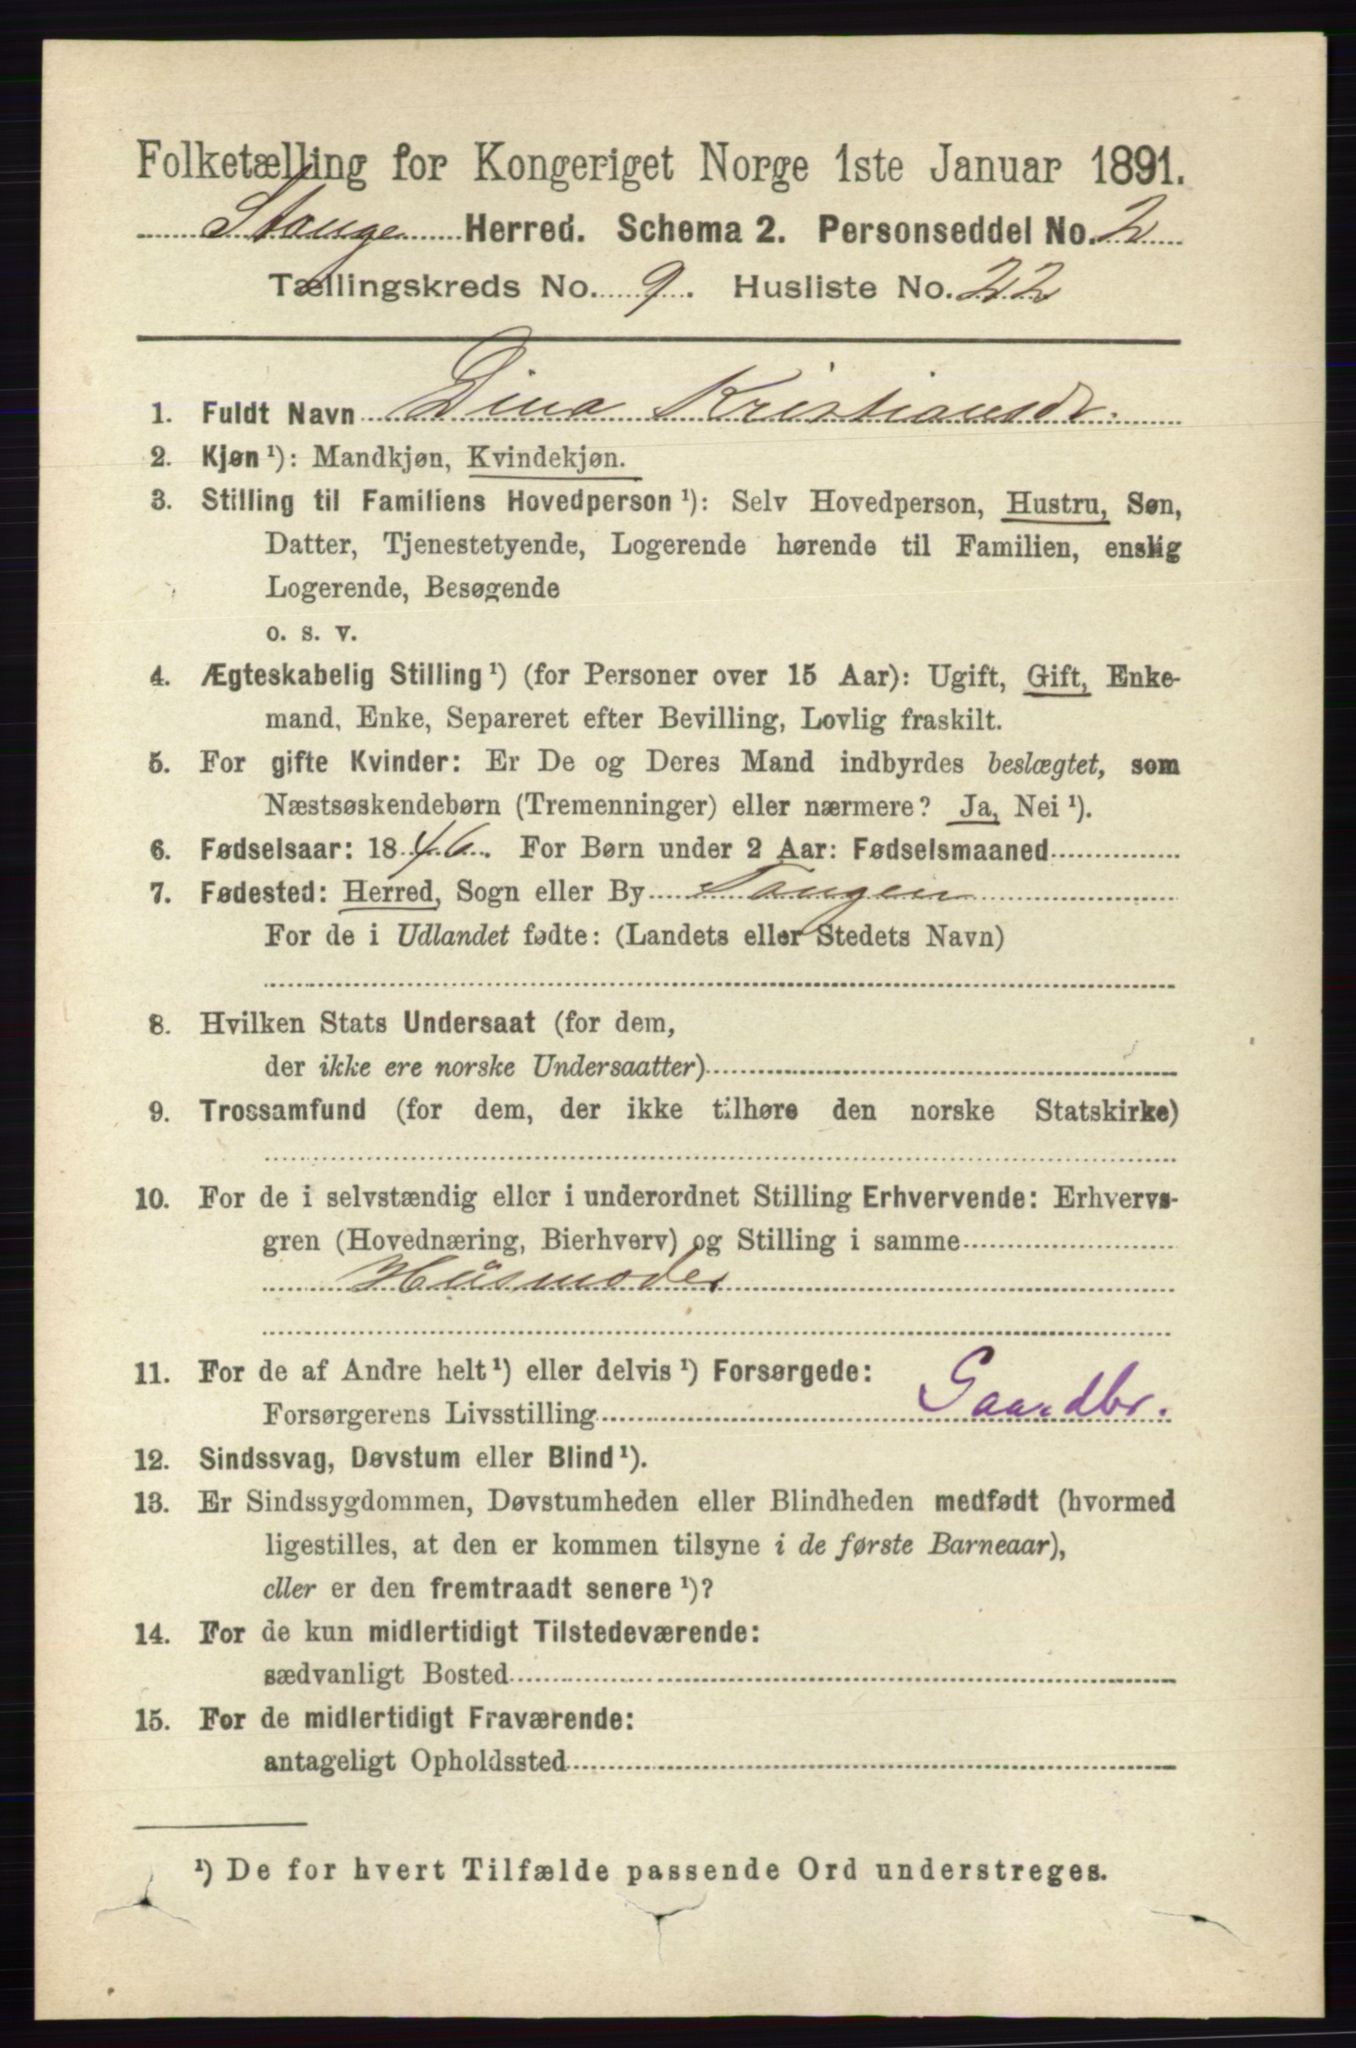 Folketælling for Kongeriget Norge 1ste Januar 1891.
Stange Herred. Schema 2. Personseddel No. 2
Tællingskreds No. 9. Husliste No. 22
1. Fuldt Navn Dina Kristiansdr.
2. Kjøn ¹): Mandkjøn, Kvindekjøn.
3. Stilling til Familiens Hovedperson ¹): Selv Hovedperson, Hustru, Søn,
Datter, Tjenestetyende, Logerende hørende til Familien, enslig
Logerende, Besøgende
o. s. v.
4. Ægteskabelig Stilling ¹) (for Personer over 15 Aar): Ugift, Gift, Enke-
mand, Enke, Separeret efter Bevilling, Lovlig fraskilt.
5. For gifte Kvinder: Er De og Deres Mand indbyrdes beslægtet, som
Næstsøskendebørn (Tremenninger) eller nærmere? Ja, Nei ¹).
6. Fødselsaar: 1846. For Børn under 2 Aar: Fødselsmaaned
7. Fødested: Herred, Sogn eller By Tangen
For de i Udlandet fødte: (Landets eller Stedets Navn)
8. Hvilken Stats Undersaat (for dem,
der ikke ere norske Undersaatter)
9. Trossamfund (for dem, der ikke tilhøre den norske Statskirke)
10. For de i selvstændig eller i underordnet Stilling Erhvervende: Erhvervs-
gren (Hovednæring, Bierhverv) og Stilling i samme
Husmoder
11. For de af Andre helt ¹) eller delvis ¹) Forsørgede:
Forsørgerens Livsstilling Gaardbr.
12. Sindssvag, Døvstum eller Blind ¹).
13. Er Sindssygdommen, Døvstumheden eller Blindheden medfødt (hvormed
ligestilles, at den er kommen tilsyne i de første Barneaar),
eller er den fremtraadt senere ¹)?
14. For de kun midlertidigt Tilstedeværende:
sædvanligt Bosted
15. For de midlertidigt Fraværende:
antageligt Opholdssted
¹) De for hvert Tilfælde passende Ord understreges.